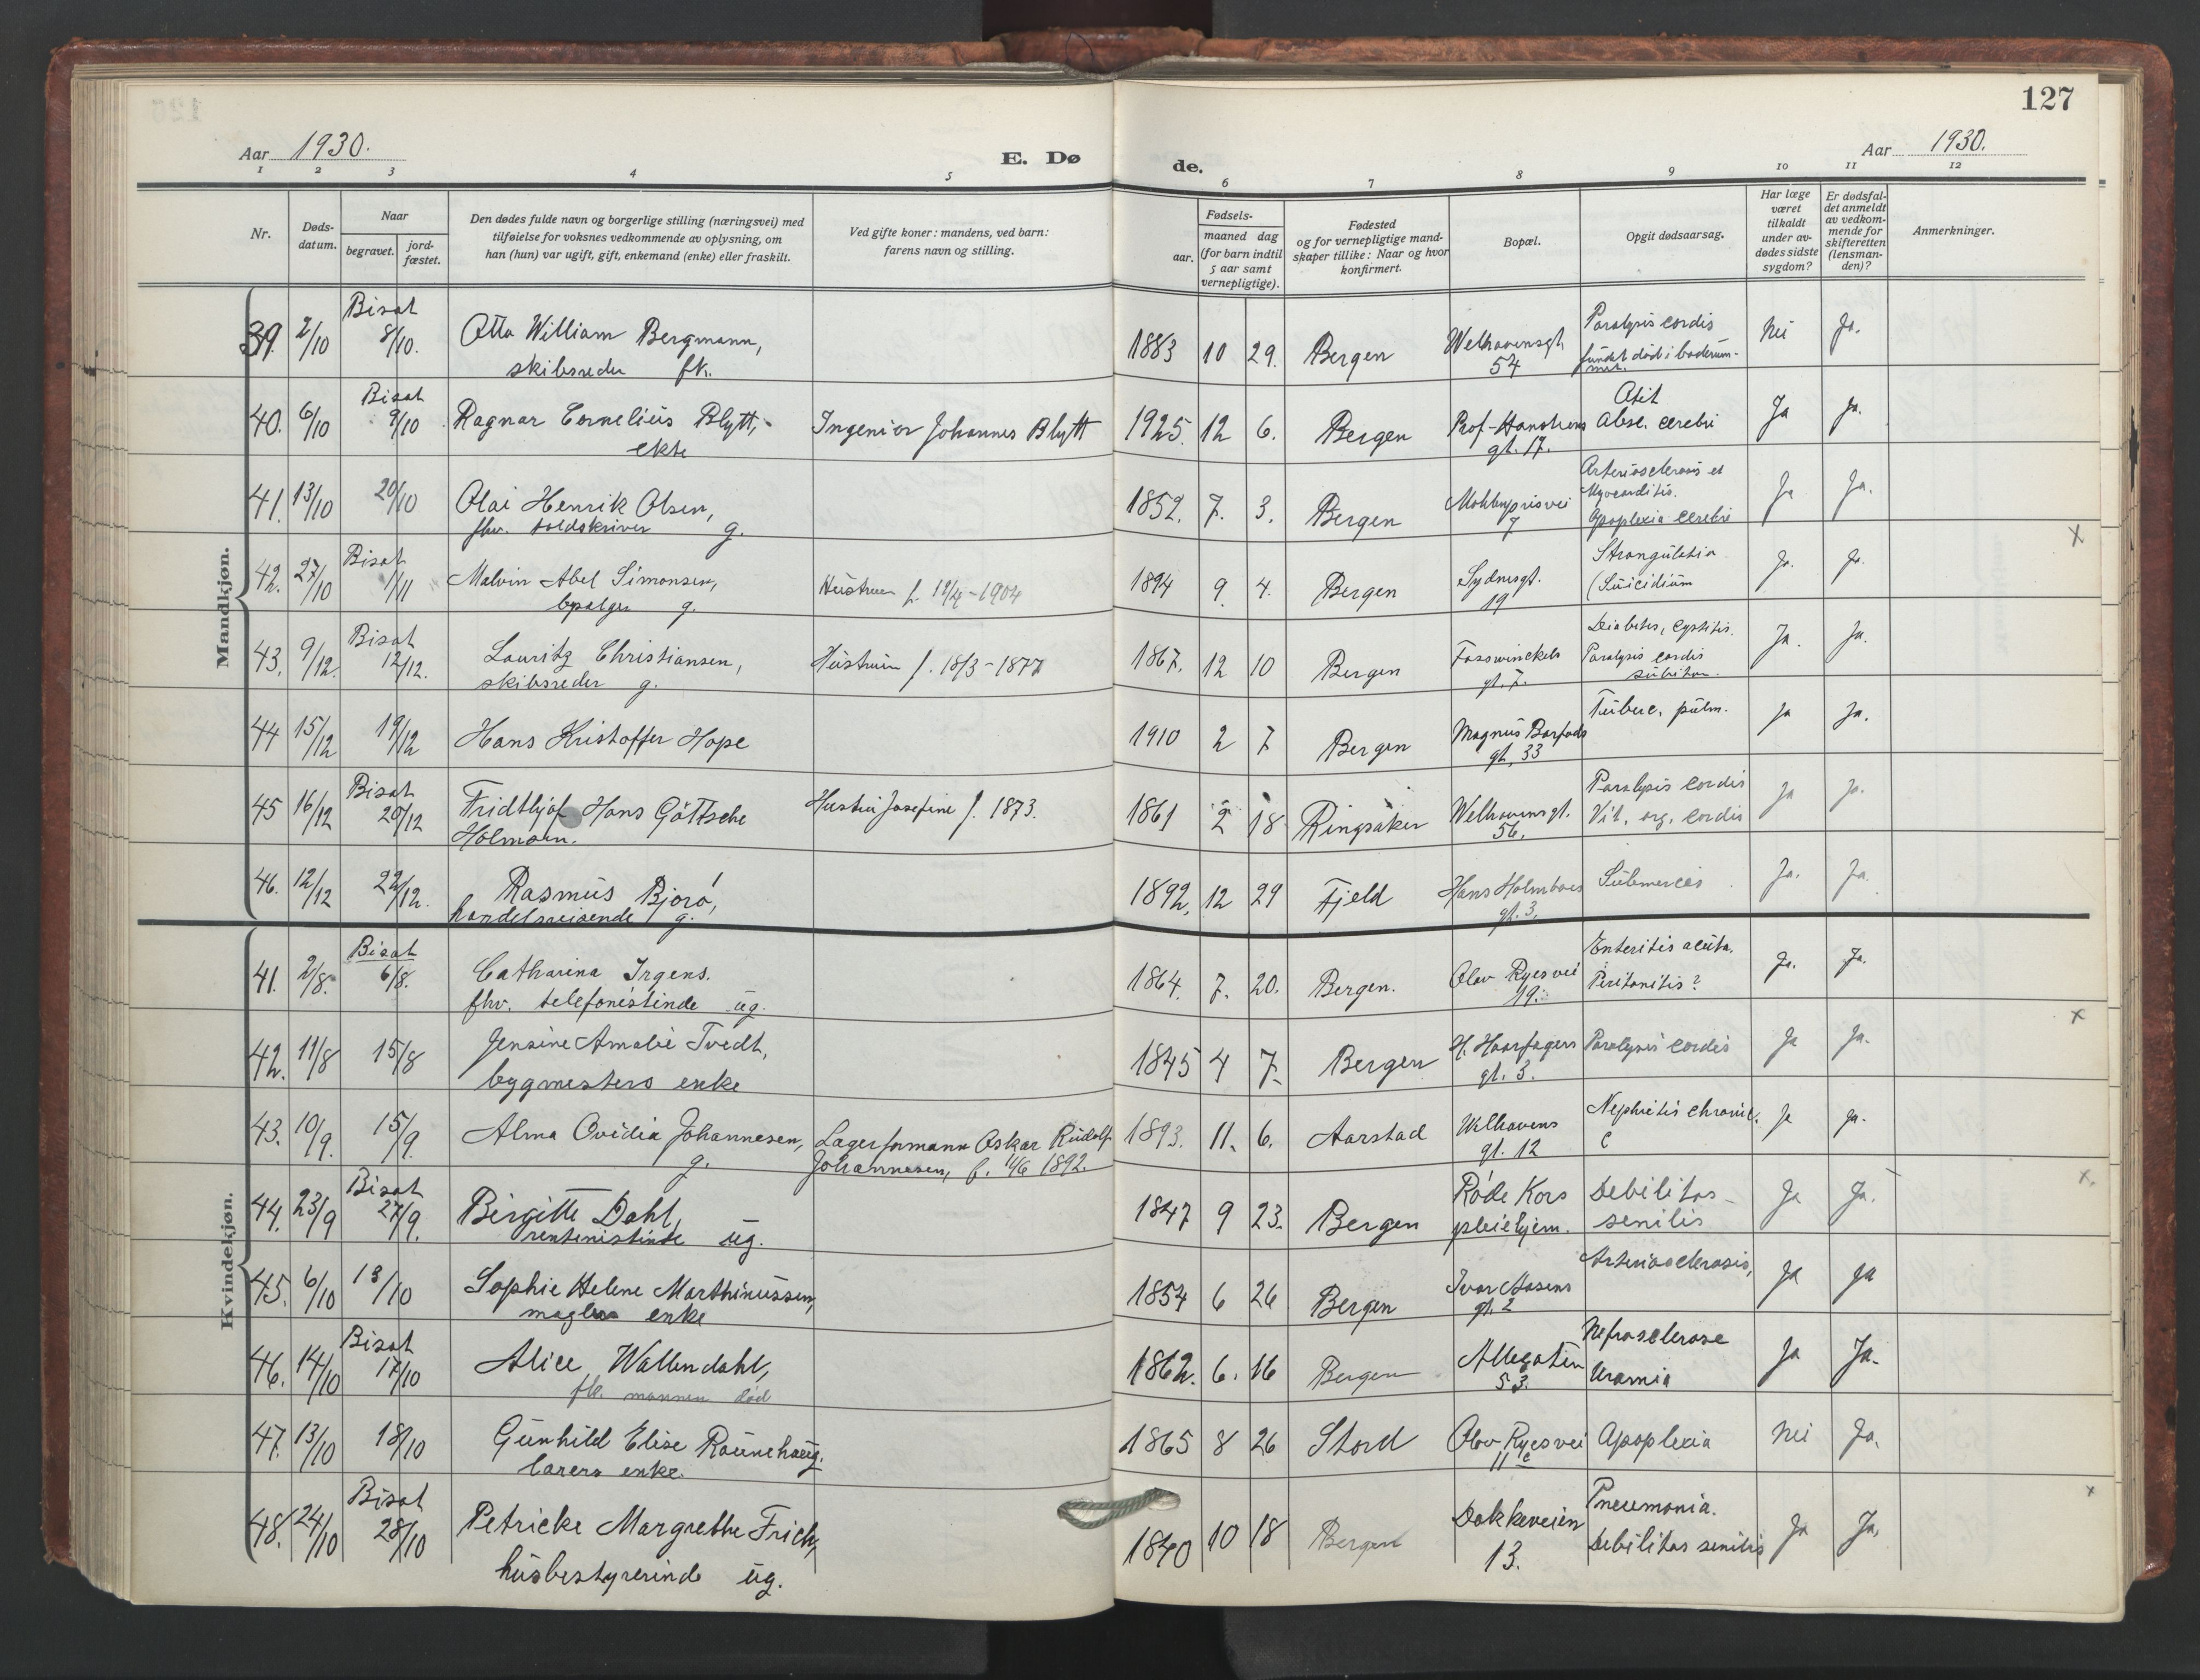 127
Aar 1930.
E. Dø de.
Aar 1930.
1 2 3 4 5 6 7 8 9 10 11 12
Nr.
Døds-
datum.
Naar
begravet.
jord-
fæstet.
Den dødes fulde navn og borgerlige stilling (næringsvei) med
tilføielse for voksnes vedkommende av oplysning, om
han (hun) var ugift, gift, enkemand (enke) eller fraskilt.
Ved gifte koner: mandens, ved barn:
farens navn og stilling.
Fødsels-
aar.
maaned dag
(for barn indtil
5 aar samt
vernepligtige).
Fødested
og for vernepligtige mand-
skaper tillike: Naar og hvor
konfirmert.
Bopæl.
Opgit dødsaarsag.
Har læge
været
tilkaldt
under av-
dødes sidste
sygdom?
Er dødsfal-
det anmeldt
av vedkom-
mende for
skifteretten
(lensman-
den)?
Anmerkninger.
Mandkjøn.
Bisat
39. 2/10 8/10. Otto William Bergmann, 1883 10 29. Bergen Welhavensgt. Paralysis cordis Nei Ja.
skibsreder fk. 54 fundet død i baderum-
met.
Bisat
40. 6/10 9/10 Ragnar Cornelius Blytt, Ingeniør Johannes Blytt 1925. 12 6. Bergen Prof-Hansteens Otit Ja Ja.
ekte gt. 17. Absc. cerebri
41. 13/10 20/10 Olai Henrik Olsen, 1852. 7. 3. Bergen Møhlenprisvei Arteriosclerosis et Ja Ja.
fhv. toldskriver g. 7 Myocarditis.
Apoplexia cerebri
x
Bisat
42. 27/10 1/11 Malvin Abel Simonsen, Hustruen f. 12/4-1904 1894 9. 4. Bergen Sydnesgt. Strangulatio Ja. Ja.
g. 19 (Suicidium
Bisat
43. 9/12. 12/12. Lauritz Christiansen, Hustruen f. 18/3-1877 1867. 12 10 Bergen Fosswinckels Diabetes, Cystitis. Ja. Ja.
skibsreder g. gt. 7. Paralysis cordis
subitan.
44 15/12 19/12 Hans Kristoffer Hope 1910 2 7 Bergen Magnus Barfods Tuberc. pulm. Ja Ja.
gt. 33
Bisat
45 16/12 20/12 Fridthjof Hans Göttsche Hustru Josefine f. 1873. 1861 2 18 Ringsaker Welhavensgt. Paralysis cordis Ja Ja.
Holmsen. 56. Vit. org. cordis
46. 12/12 22/12. Rasmus Bjorø, 1892, 12 29 Fjeld Hans Holmboes Submersio Ja. Ja.
handelsreisende g. gt. 3.
Kvindekjøn.
Bisat
41. 2/8. 6/8. Catharina Irgens. 1864. 7. 20. Bergen. Olav Ryesvei Enteritis acuta. Ja. Ja.
fhv. telefonistinde ug. 19. Peritonitis?
x
42. 11/8 15/8 Jensine Amalie Tvedt, 1845 4 7. Bergen H. Haarfagers Paralysis cordis Ja Ja.
bygmesters enke gt. 3.
43. 10/9. 15/9. Alma Ovidia Johannesen, Lagerformann Oskar Rudolf 1893. 11. 6. Aarstad Welhavens Nephritis chronic. Ja Ja.
g. Johannesen, f. 11/6 1892. gt. 12
x.
Bisat
44. 23/9 27/9. Birgitte Dahl, 1847 9 23. Bergen Røde Kors Debilitas Ja Ja.
rentenistinde ug. pleiehjem. senilis
45. 6/10 13/10 Sophie Helene Marthinussen, 1854 6 26 Bergen Ivar Aasens Arteriosclerosis, Ja Ja
enke gt. 2
Bisat
46. 14/10 17/10 Alice Wallendahl, 1862. 6. 16 Bergen Allegaten Nefrosclerose Ja Ja.
fk. mannen död 53. Uræmia
47. 13/10 18/10 Gunhild Elise Raunehaug. 1865 8 26 Stord Olav Ryesvei Apoplexia Nei Ja.
lærers enke. 11c
x
Bisat
48. 24/10 28/10 Petricke Margrethe Frich, 1840 10 18 Bergen Dokkeveien Pneumonia. Ja Ja.
husbestyrerinde ug. 13. Debilitas senilis